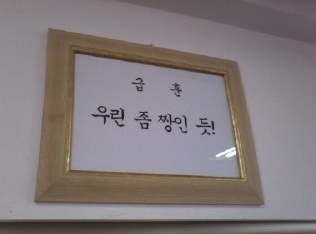 급 훈
우린 좀 짱인 듯!